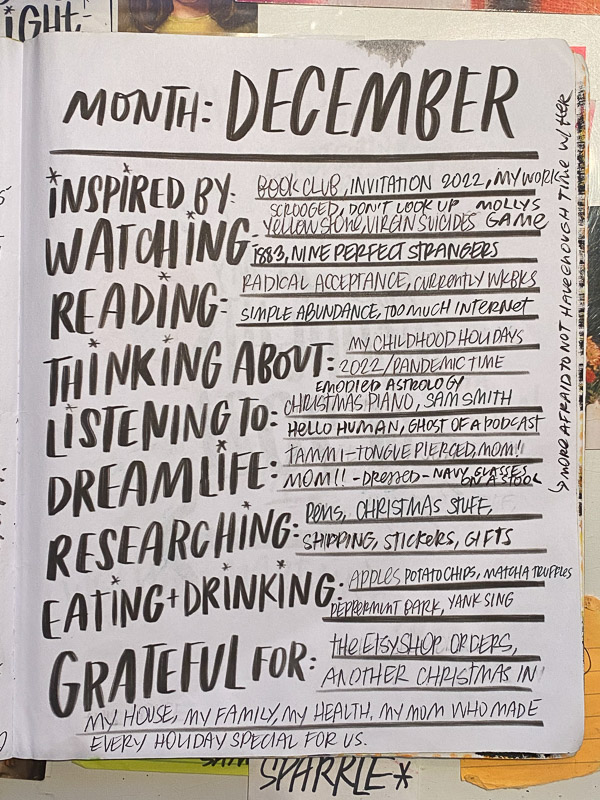 IGHT
MONTH: DECEMBER
*INSPIRED BY: BOOK CLUB, INVITATION 2022, MY WORK
SCROOGED, DON'T LOOK UP MOLLYS
WATCHING: YELLOWSTONE, VIRGIN SUICIDES GAME
1883, NINE PERFECT STRANGERS
READING: RADICAL ACCEPTANCE, CURRENTLY WKBKS
SIMPLE ABUNDANCE, TOO MUCH INTERNET
THINKING ABOUT: MY CHILDHOOD HOLIDAYS
2022/PANDEMIC TIME
EMODIED ASTROLOGY
LISTENING TO: CHRISTMAS PIANO, SAM SMITH
HELLO HUMAN, GHOST OF A PODCAST
DREAMLIFE: TAMMI-TONGUE PIERCED, MOM!
MOM!! - DRESSED - NAVY, GLASSES
ON A STOOL
RESEARCHING: PENS, CHRISTMAS STUFF,
SHIPPING, STICKERS, GIFTS
EATING + DRINKING: APPLES POTATO CHIPS, MATCHA TRUFFLES
PEPPERMINT BARK, YANK SING
GRATEFUL FOR: THE ETSY SHOP ORDERS,
ANOTHER CHRISTMAS IN
MY HOUSE, MY FAMILY, MY HEALTH, MY MOM WHO MADE
EVERY HOLIDAY SPECIAL FOR US.
↳ MORE AFRAID TO NOT HAVE ENOUGH TIME W/ HER
SPARKLE*